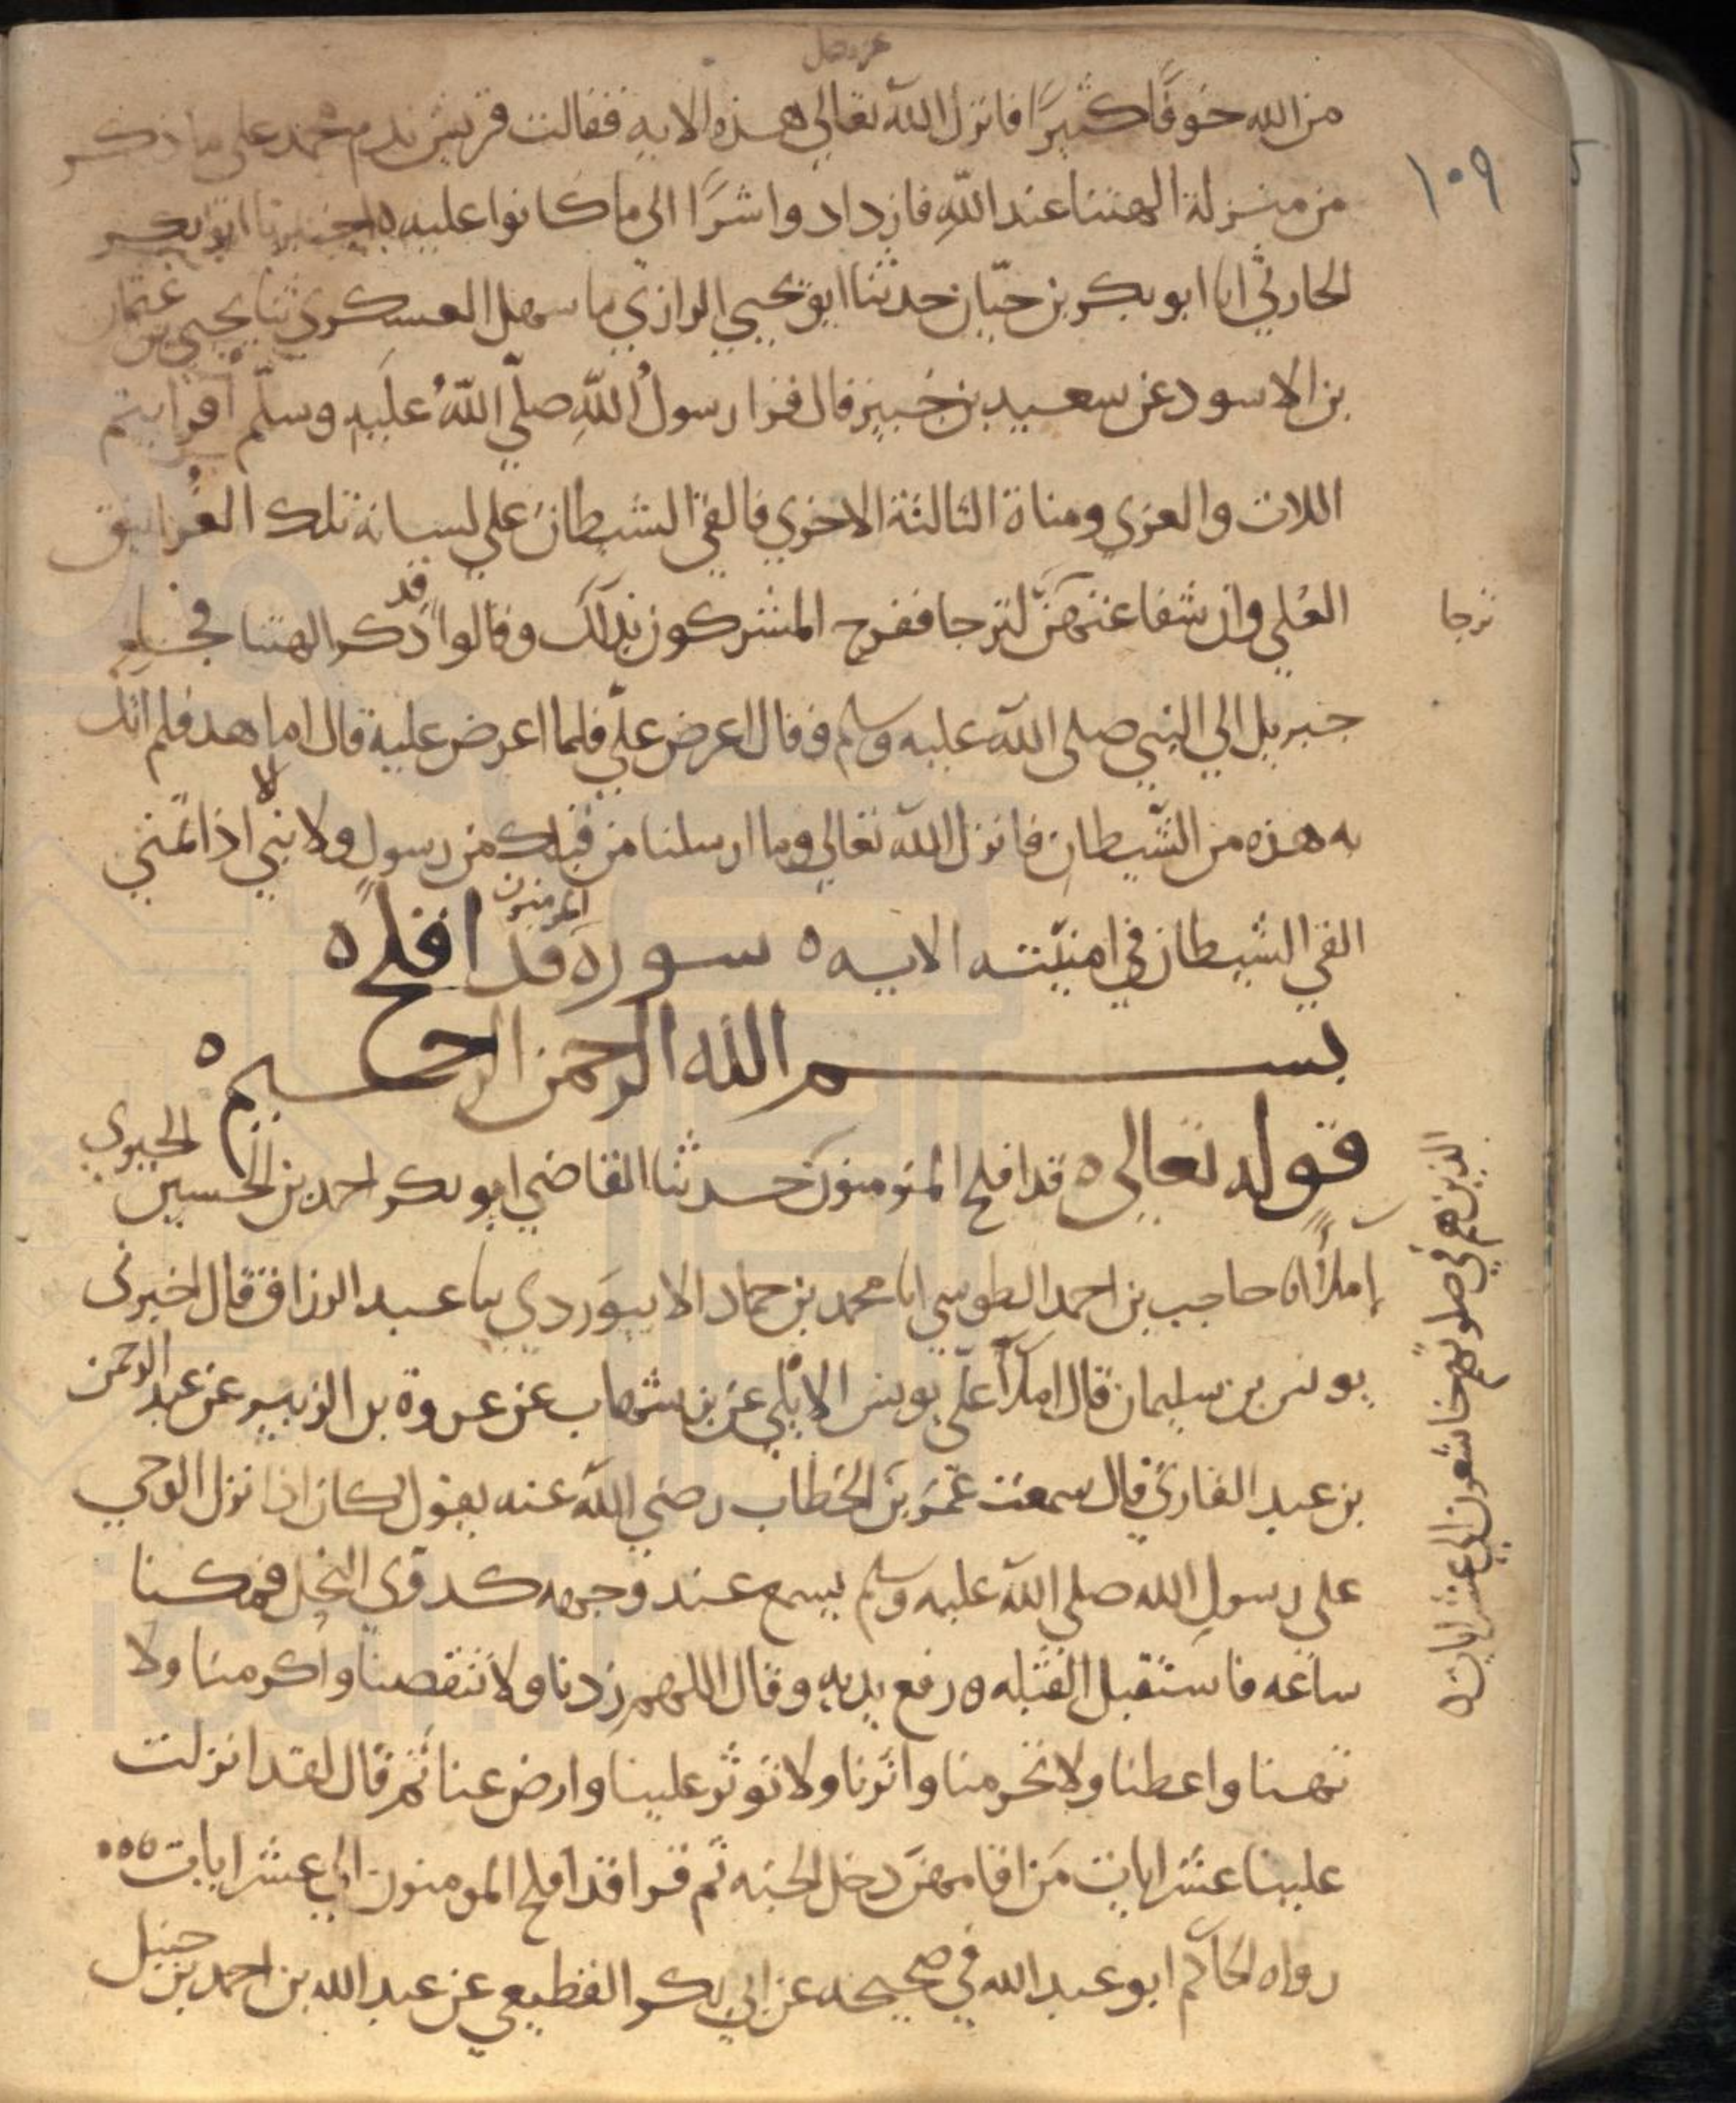 عز وجل
من الله خوفا كثيرا فانزل الله تعالى هذه الايه فقالت قريش ندم محمد على ما ذكر
من منزلة الهتنا عند الله فازداد وا شرا الى ما كانوا عليه ه اخبرنا ابو بكر
الحارثي انا ابو بكر بن حيّان حدثنا ابو يحيي الرازي نا سهل العسكري ثنا يحيي بن عثمان
بن الاسود عن سعيد بن جبير قال قرا رسول الله صلّي الله عليه وسلّم افرايتم
اللات والعزي ومناة الثالثة الاخري فالقي الشيطان علي لسانه تلك الغرانيق
العُلي وان شفاعتهنّ لترجا ففرح المشركون بذلك وقالوا قد ذكر الهتنا فجا
ترجا
جبريل الي النبي صلى الله عليه وسلم وقال اعرض عليّ فلما اعرض عليه قال اما هذ فلم اتك
به هذه من الشيطان فانزل الله تعالي وما ارسلنا من قبلك من رسول ولا نبي الا اذا تمني
القي الشيطان في امنيّته الايه ه سورة قد افلح ه
المومنون
بسم الله الرحمن الرحيم ه
قوله تعالى ه قد افلح المئومنون حدثنا القاضي ابو بكر احمد بن الحسين الحيري
الذين هم في صلوتهم خاشعون الي عشر ايات ه
إملاً انا حاجب بن احمد الطوسي انا محمد بن حماد الابيوردي نا عبد الرزاق قال اخبرنى
يونس بن سليمان قال املاً عليّ يونس الايلي عن بن شهاب عن عروة بن الزبير عن عبد الرحمن
بن عبد القاري قال سمعت عمر بن الخطاب رضي الله عنه يقول كان اذا نزل الوحي
على رسول الله صلى الله عليه وسلم يسمع عند وجهه كدوّي النحل فمكثنا
ساعه فاستقبل القبله ورفع يديه وقال اللهم زدنا ولا تنقصنا واكرمنا ولا
تهنا واعطنا ولا تحرمنا واثرنا ولا توثر علينا وارض عنا ثم قال لقد انزلت
علينا عشر ايات من اقامهن دخل الجنه ثم قرا قد افلح المومنون الى عشر ايات ه ه ه
رواه الحاكم ابو عبد الله في صحيحه عن ابي بكر القطيعي عن عبد الله بن احمد بن حنبل
١٠٩